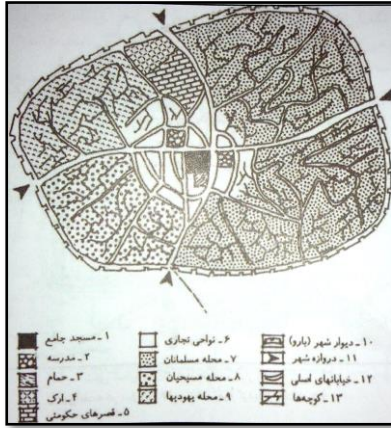 ۱ـ مسجد جامع
۲ـ مدرسه
۳ـ حمام
۴ـ ارک
۵ـ قصرهای حکومتی
۶ـ نواحی تجاری
۷ـ محله مسلمانان
۸ـ محله مسیحیان
۹ـ محله یهودیها
۱۰ـ دیوار شهر (بارو)
۱۱ـ دروازه شهر
۱۲ـ خیابانهای اصلی
۱۳ـ کوچه‌ها